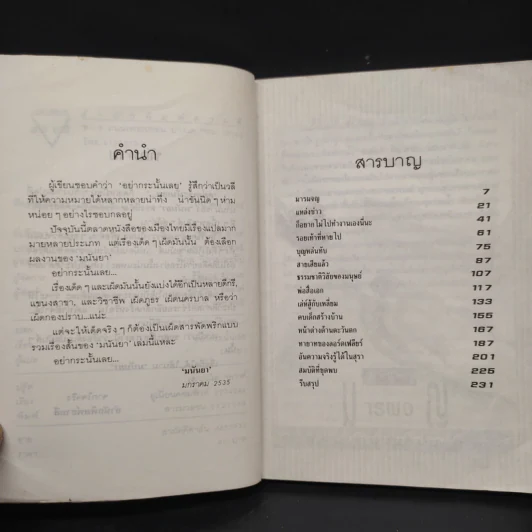 คำนำ
ผู้เขียนชอบคำว่า 'อย่ากระนั้นเลย' รู้สึกว่าเป็นวลี
ที่ให้ความหมายได้หลากหลายน่าทึ่ง น่าขันนิดๆ ห่าม
หน่อยๆ อย่างไรชอบกลอยู่
ปัจจุบันนี้ตลาดหนังสือของเมืองไทยมีเรื่องแปลมาก
มายหลายประเภท แต่เรื่องเด็ดๆ เผ็ดมันนั้น ต้องเลือก
ผลงานของ 'มนันยา'
อย่ากระนั้นเลย...
เรื่องเด็ดๆ และเผ็ดมันนั้นยังแบ่งได้อีกเป็นหลายดีกรี,
แขนงสาขา, และวิชาชีพ เผ็ดภูธร เผ็ดนครบาล หรือว่า
เผ็ดกองปราบ...แน่ะ
แต่จะให้เด็ดจริงๆ ก็ต้องเป็นเผ็ดสารพัดพริกแบบ
รวมเรื่องสั้นของ 'มนันยา' เล่มนี้แหละ
อย่ากระนั้นเลย...
'มนันยา'
มกราคม 2535
สารบาญ
มารผจญ 7
แหล่งข่าว 21
ก็อยากไม่ไปทำงานเองนี่นะ 41
รอยเท้าที่หายไป 61
บุญหล่นทับ 75
สายเสียแล้ว 87
ธรรมชาติวิสัยของมนุษย์ 107
พ่อสื่อเอก 117
เล่ห์สู้กับเหลี่ยม 133
คบเด็กสร้างบ้าน 155
หน้าต่างด้านตะวันออก 167
ทายาทของลอร์ดเฟลียร์ 187
อันความจริงรู้ได้ในสุรา 201
สมบัติที่ขุดพบ 225
รีบสรุป 231